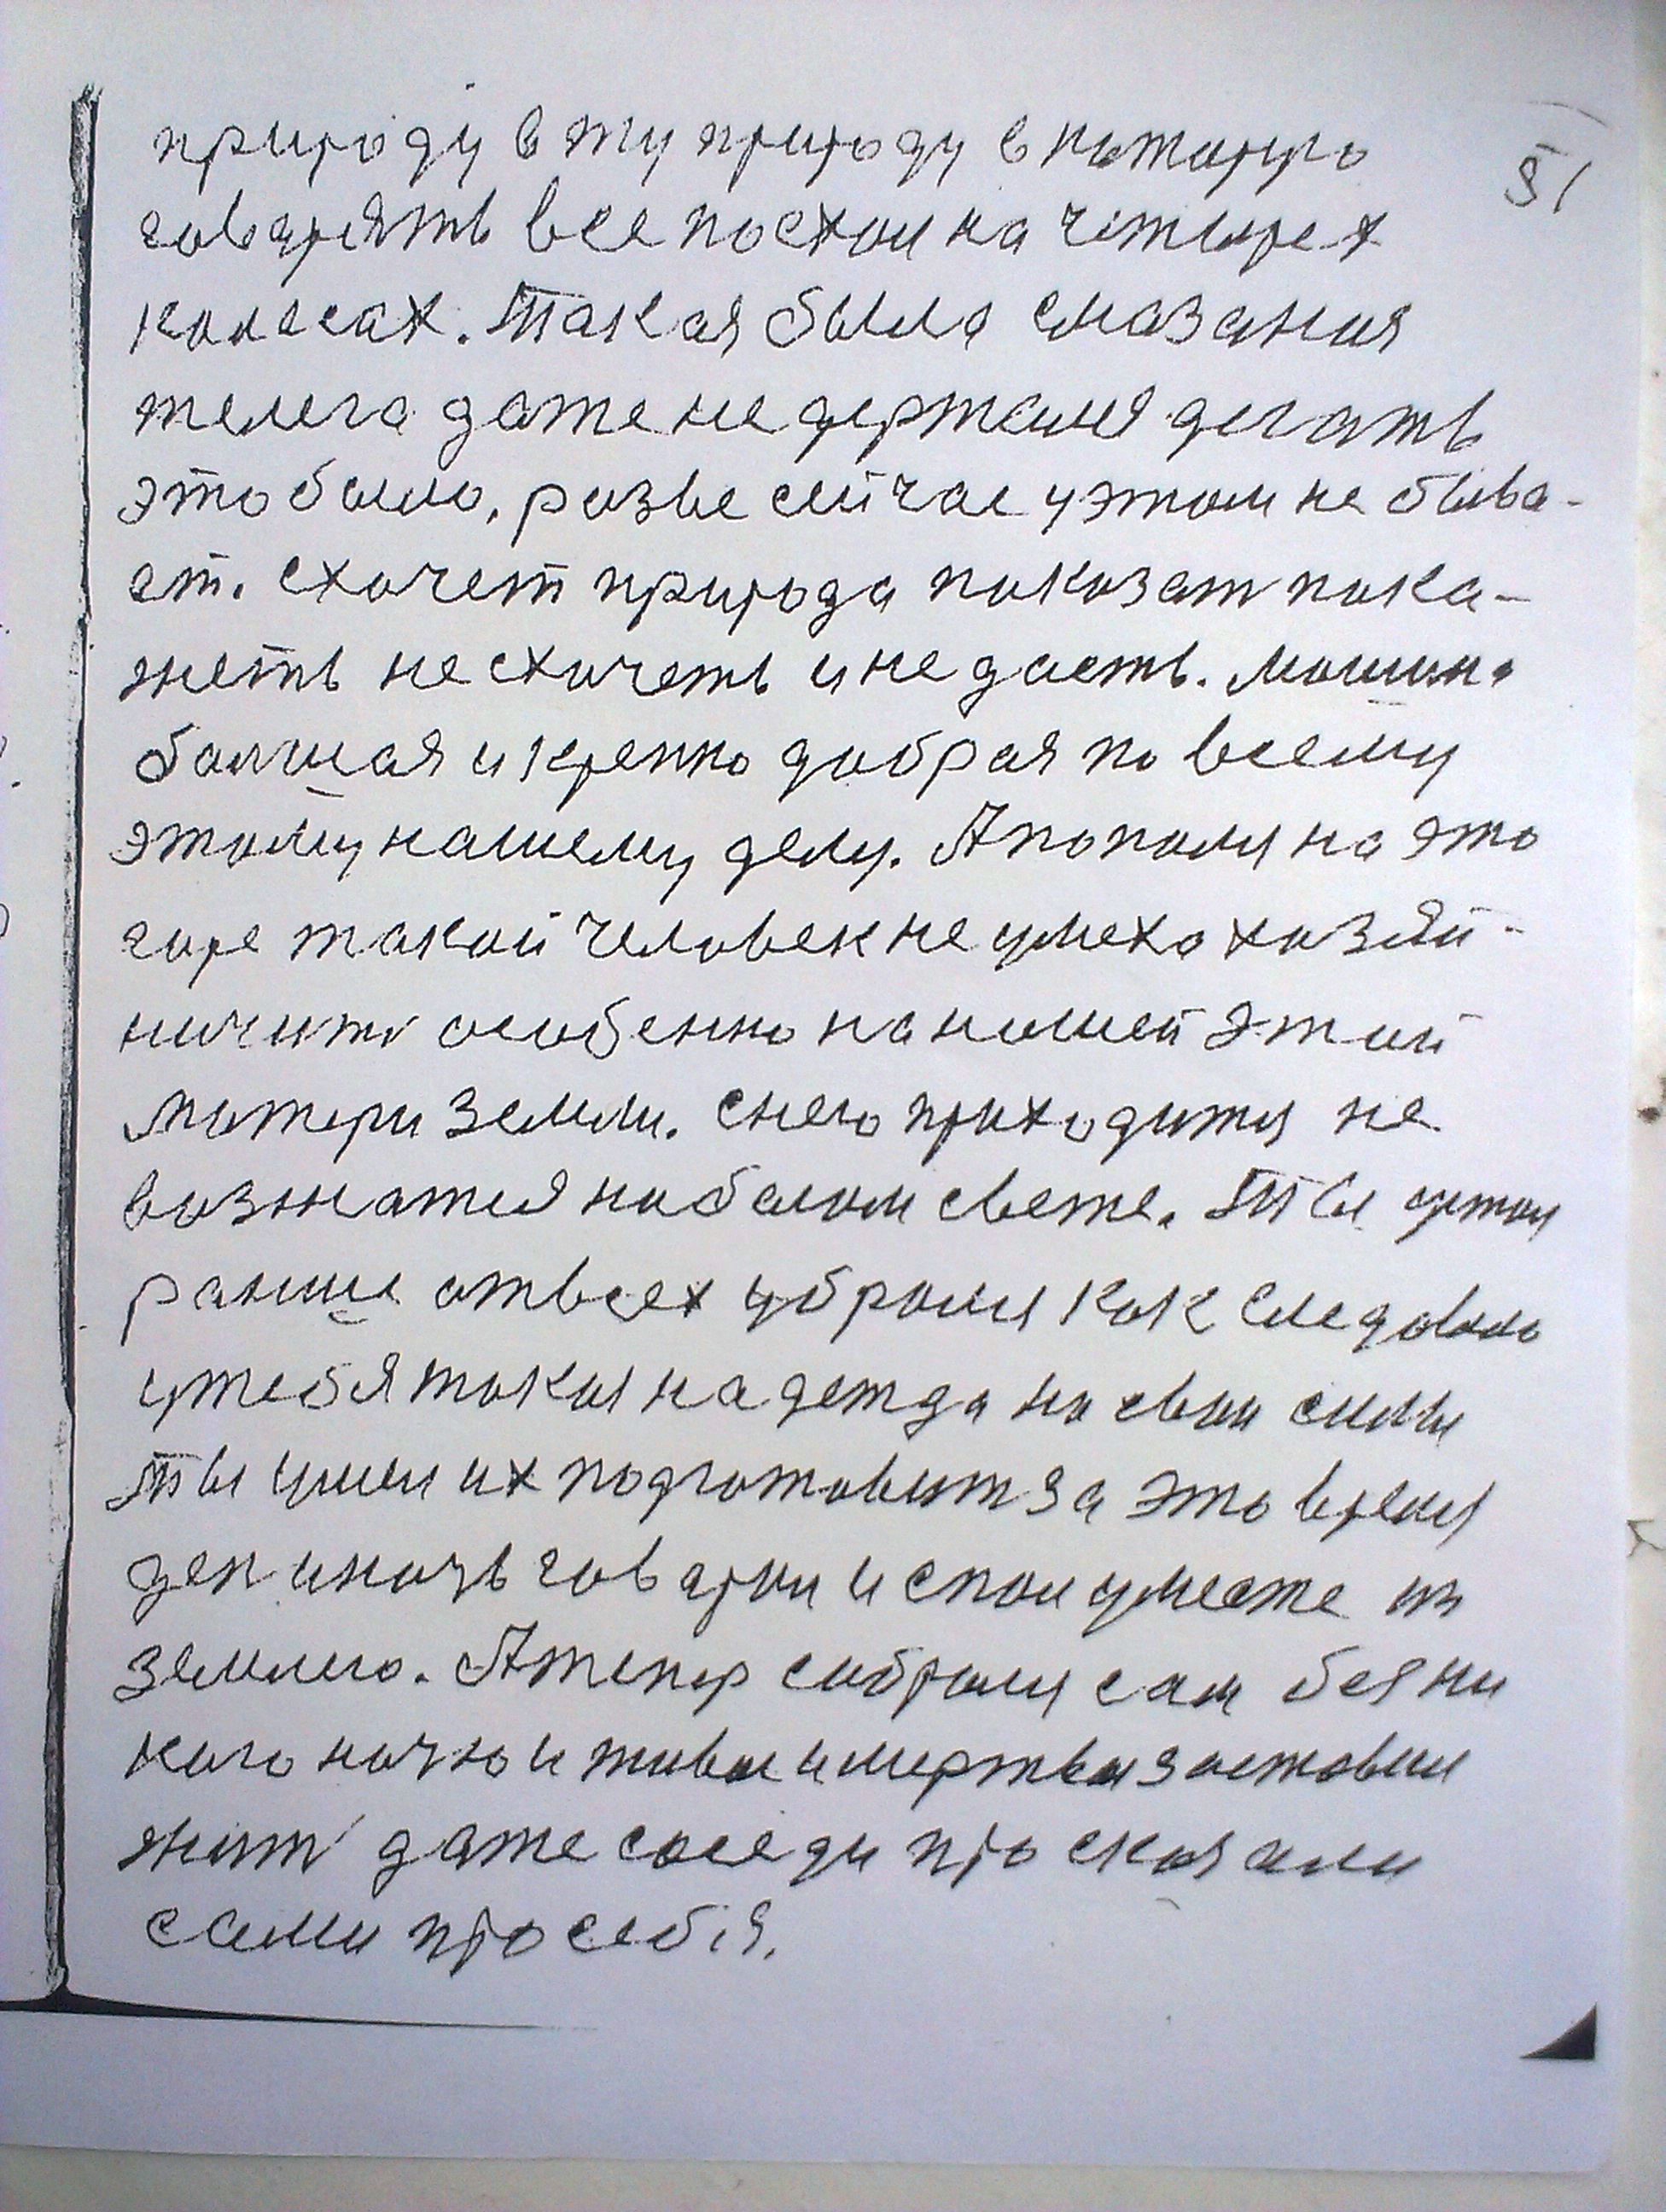 природу в ту природу в которую 51
говарять все поехом на четырех
колесах. Такая была смазаная
телега даже не держался дегать
это было, разве сейчас у этом не быва-
ет. Схочет природа показат пока-
жеть не схочеть и не дасть. Машина
балшая и крепко добрая по всему
этому нашему делу. А попался на это
горе такой человек не умеха хозяй-
ничить особенно на нашей этой
матери земли. С него приходится не
возжатся на белом свете. Ты утом
ранше от всех убрался как следовало
у тебя такая надежда на свои силы
ты умел их подготовит за это время
ден и ночь говарил и спал уместе из
землею. А тепер собрался сам без ни
кого ночю и живых и мертвых заставил
жит даже соседи про сказали
сами про себя.